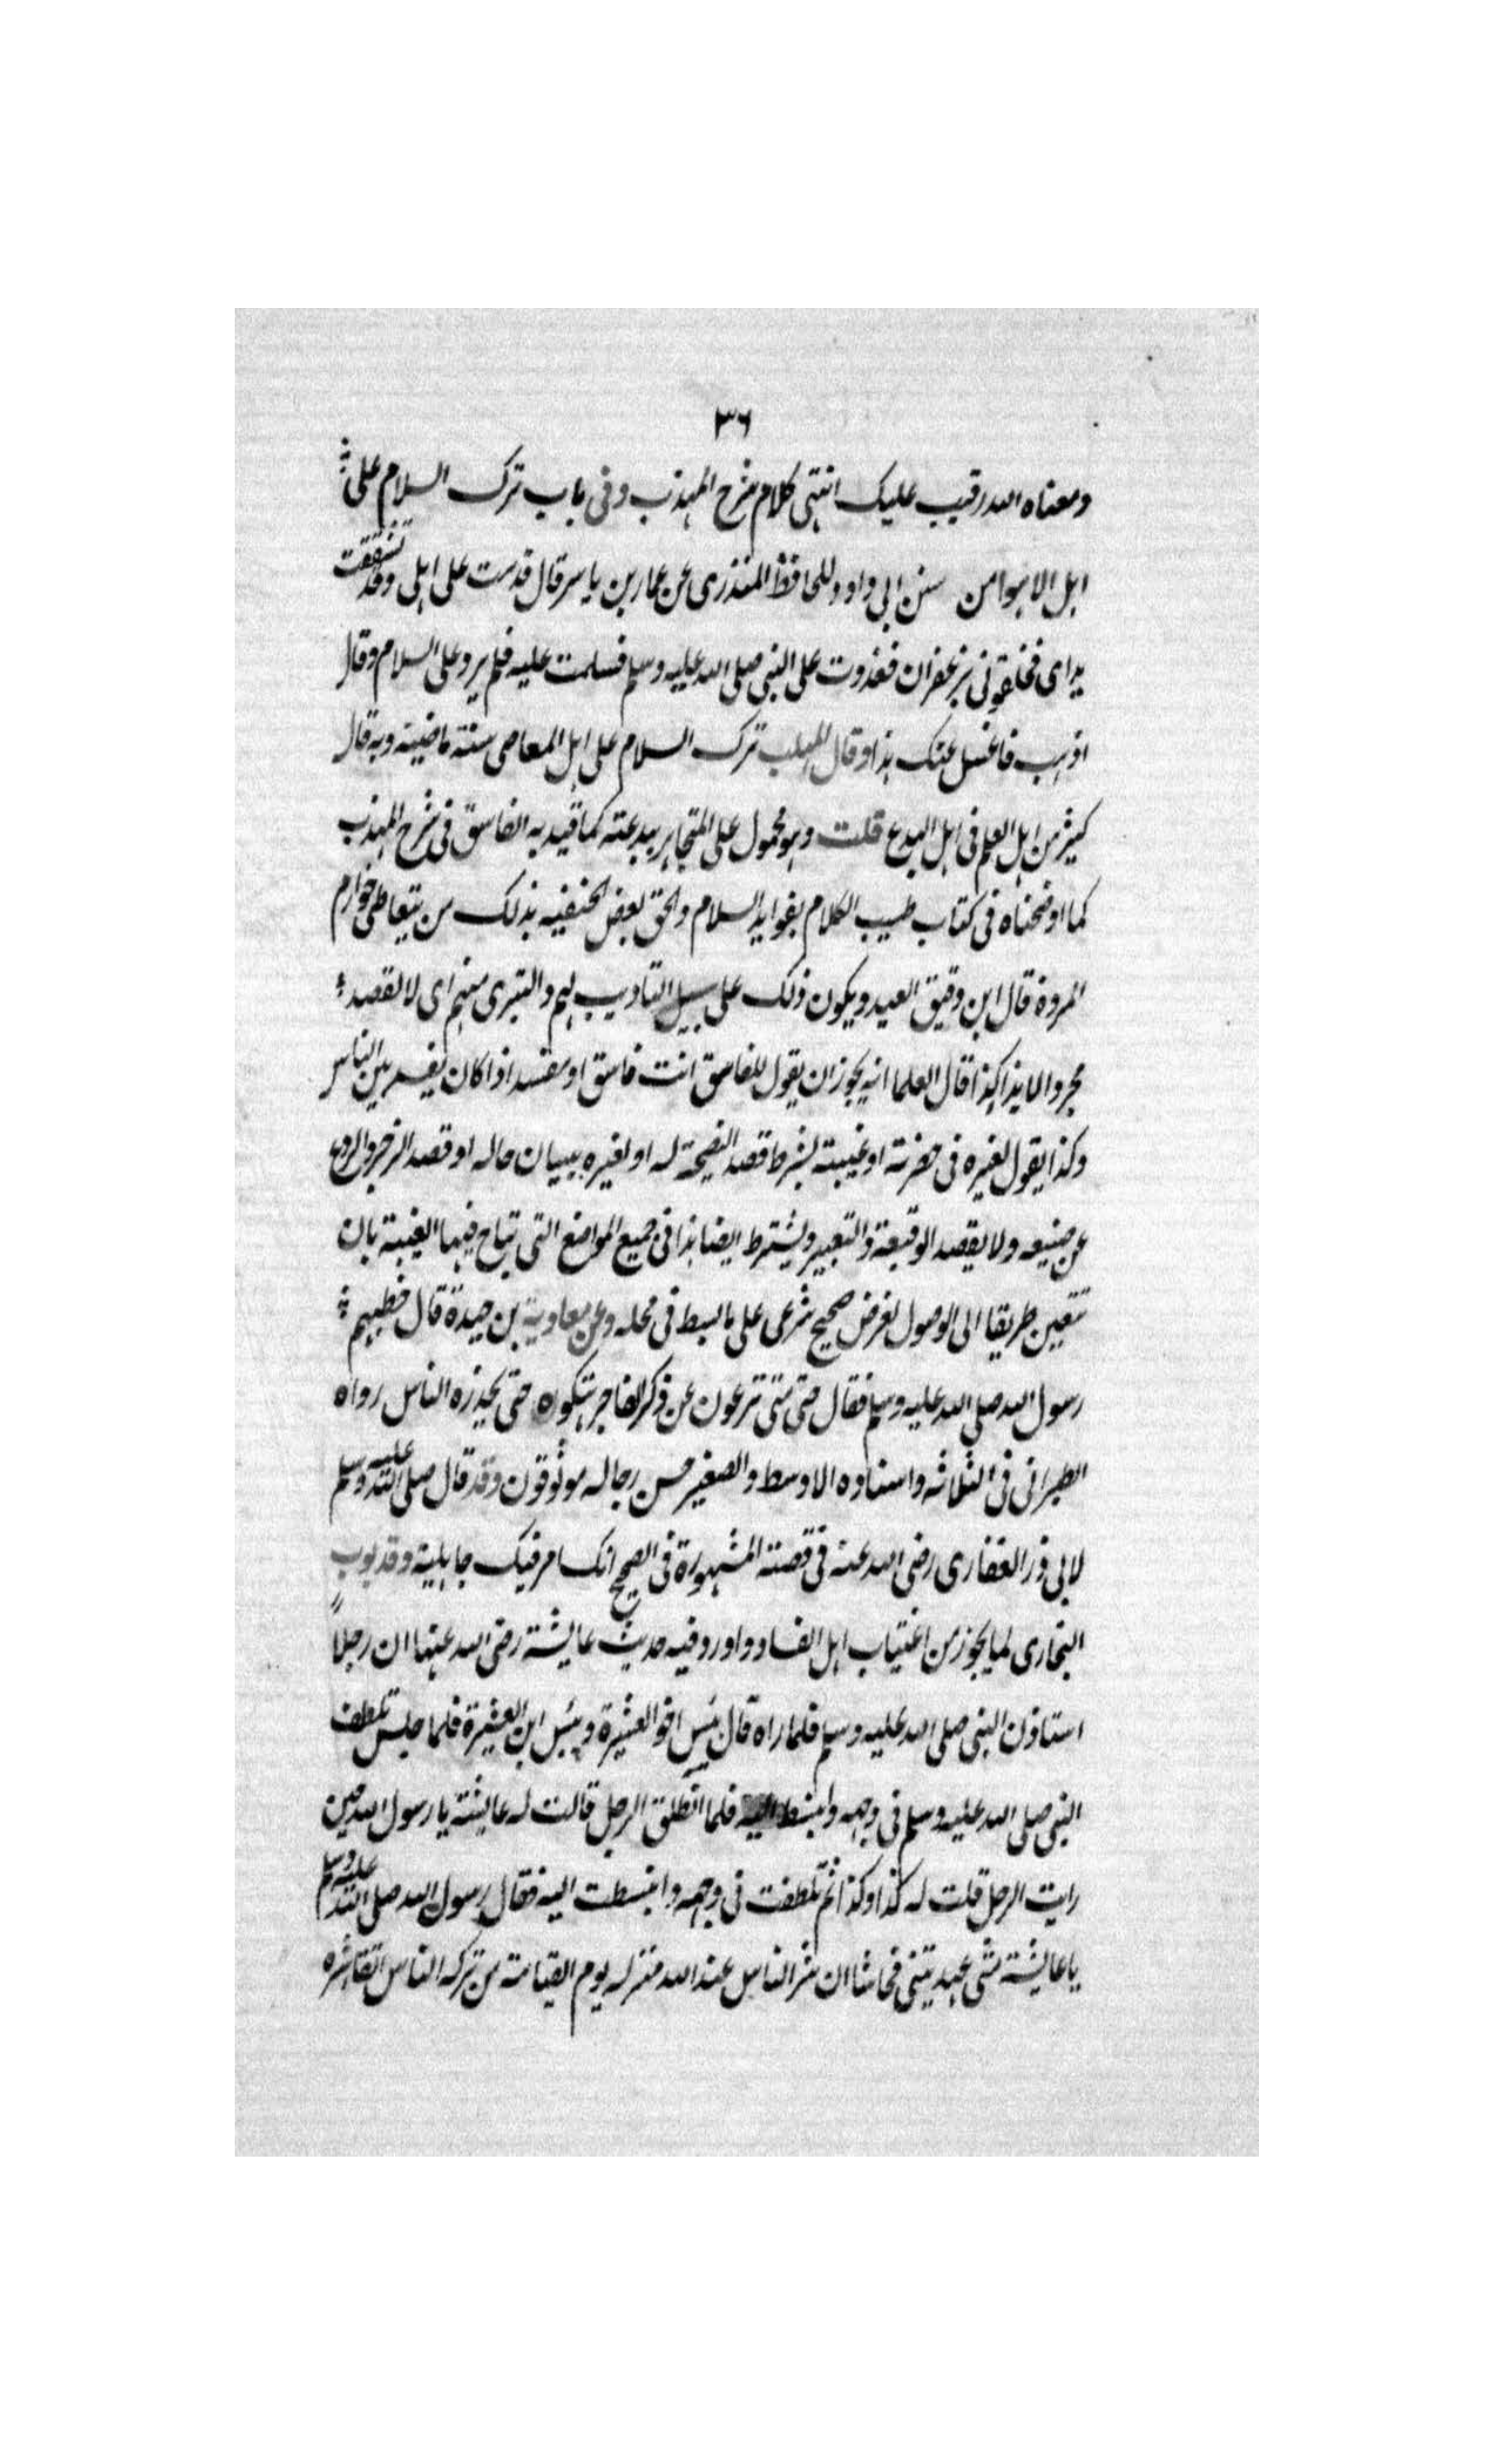 ٣٦
ومعناه الله رقيب عليك انتهى كلام شرح المهذب وفى باب ترك السلام على
اهل الاهوا من سنن ابى داود للحافظ المنذرى عن عمار بن ياسر قال قدمت على اهلى وقد تشققت
يداى فخلقونى بزعفران فغدوت على النبى صلى الله عليه وسلم فسلمت عليه فلم يرد على السلام وقال
اذهب فاغسل عنك هذا وقال المهلب ترك السلام على اهل المعاصى سنة ماضية وبه قال
كثير من اهل العلم فى اهل البدع قلت وهو محمول على المتجاهر ببدعته كما قيد به الفاسق فى شرح المهذب
كما اوضحناه فى كتاب طيب الكلام بفوايد السلام والحق بعض الحنفيه بذلك من يتعاطى خوارم
المروة قال ابن دقيق العيد ويكون ذلك على سبيل التاديب لهم والتبرى منهم اى لا لقصد
مجرد الايذا كذا قال العلما انه يجوز ان يقول للفاسق انت فاسق او مفسد اذا كان يفسد بين الناس
وكذا يقول لغيره فى حضرته او غيبته بشرط قصد النصيحة له او لغيره ببيان حاله او قصد الزجر والردع
عن صنيعه ولا يقصد الوقيعة والتعيير ويشترط ايضا هذا فى جميع المواضع التى تباح فيها الغيبة بان
تتعين طريقا الى الوصول لغرض صحيح شرعى على ما بسط فى محله وعن معاوية بن حيدة قال خطبهم
رسول الله صلى الله عليه وسلم فقال حتى متى ترعون عن ذكر الفاجر هتكوه حتى يحذره الناس رواه
الطبرانى فى الثلاثه واسناده الاوسط والصغير حسن رجاله موثوقون وقد قال صلى الله عليه وسلم
لابى ذر الغفارى رضى الله عنه فى قصته المشهورة فى الصحيح انك امرء فيك جاهلية وقد بوب
البخارى لما يجوز من اغتياب اهل الفساد واورد فيه حديث عايشة رضى الله عنها ان رجلاً
استاذن النبى صلى الله عليه وسلم فلما راه قال بئس اخو العشيرة وبئس ابن العشيرة فلما جلس تلطف
النبى صلى الله عليه وسلم فى وجهه وانبسط اليه فلما انطلق الرجل قالت له عايشة يا رسول الله حين
رايت الرجل قلت له كذا وكذا ثم تلطفت فى وجهه وانبسطت اليه فقال رسول الله صلى الله عليه وسلم
يا عايشة متى عهدتينى فحاشا ان شر الناس عند الله منزله يوم القيامة من تركه الناس اتقا شره